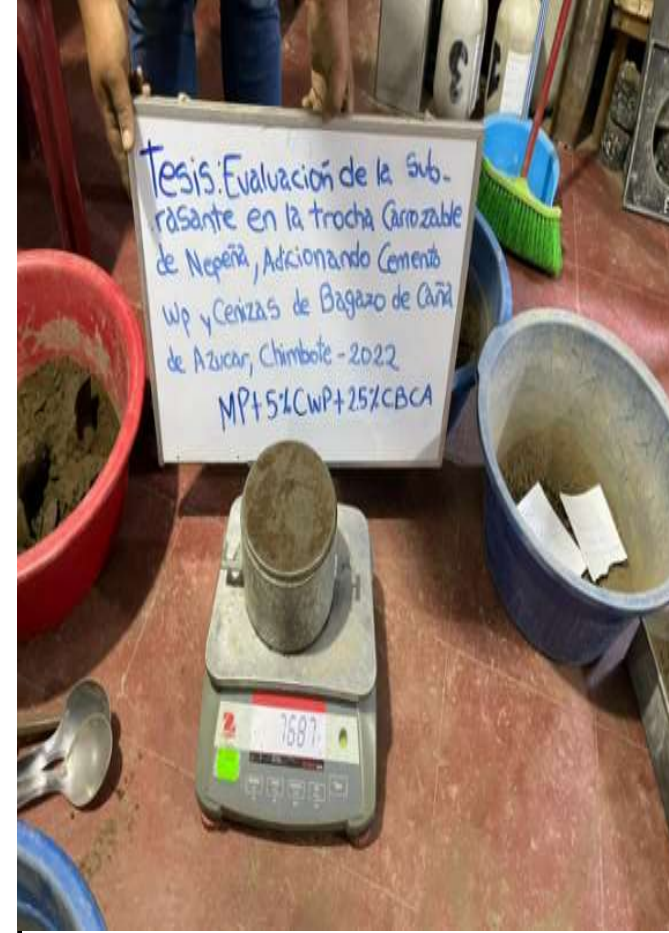 Tesis: Evaluación de la Sub-
rasante en la trocha Carrozable
de Nepeña, Adicionando Cemento
Wp y Cenizas de Bagazo de Caña
de Azucar, Chimbote - 2022
MP+5%CWP+25%CBCA
7687